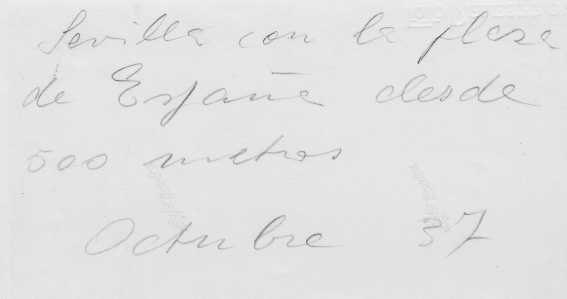 Sevilla con la plaza
de España desde
500 metros
Octubre 37